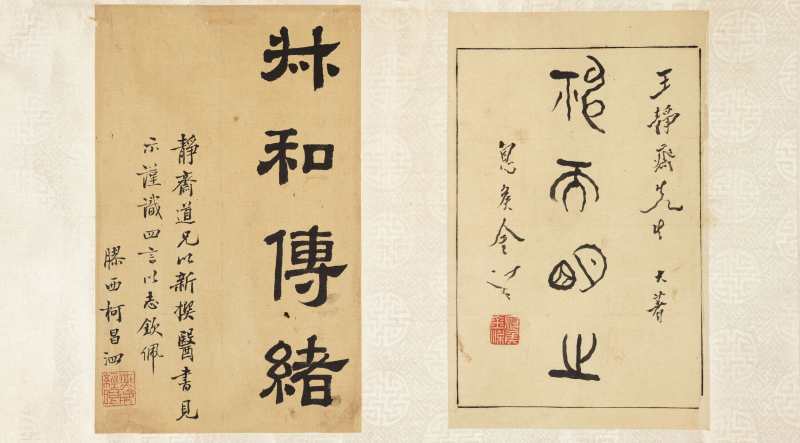 王靜齋先生大著
神而明之
息侯金梁
叔和傳緒
靜齋道兄以新撰醫書見
示謹識四言以志欽佩
膠西柯昌泗